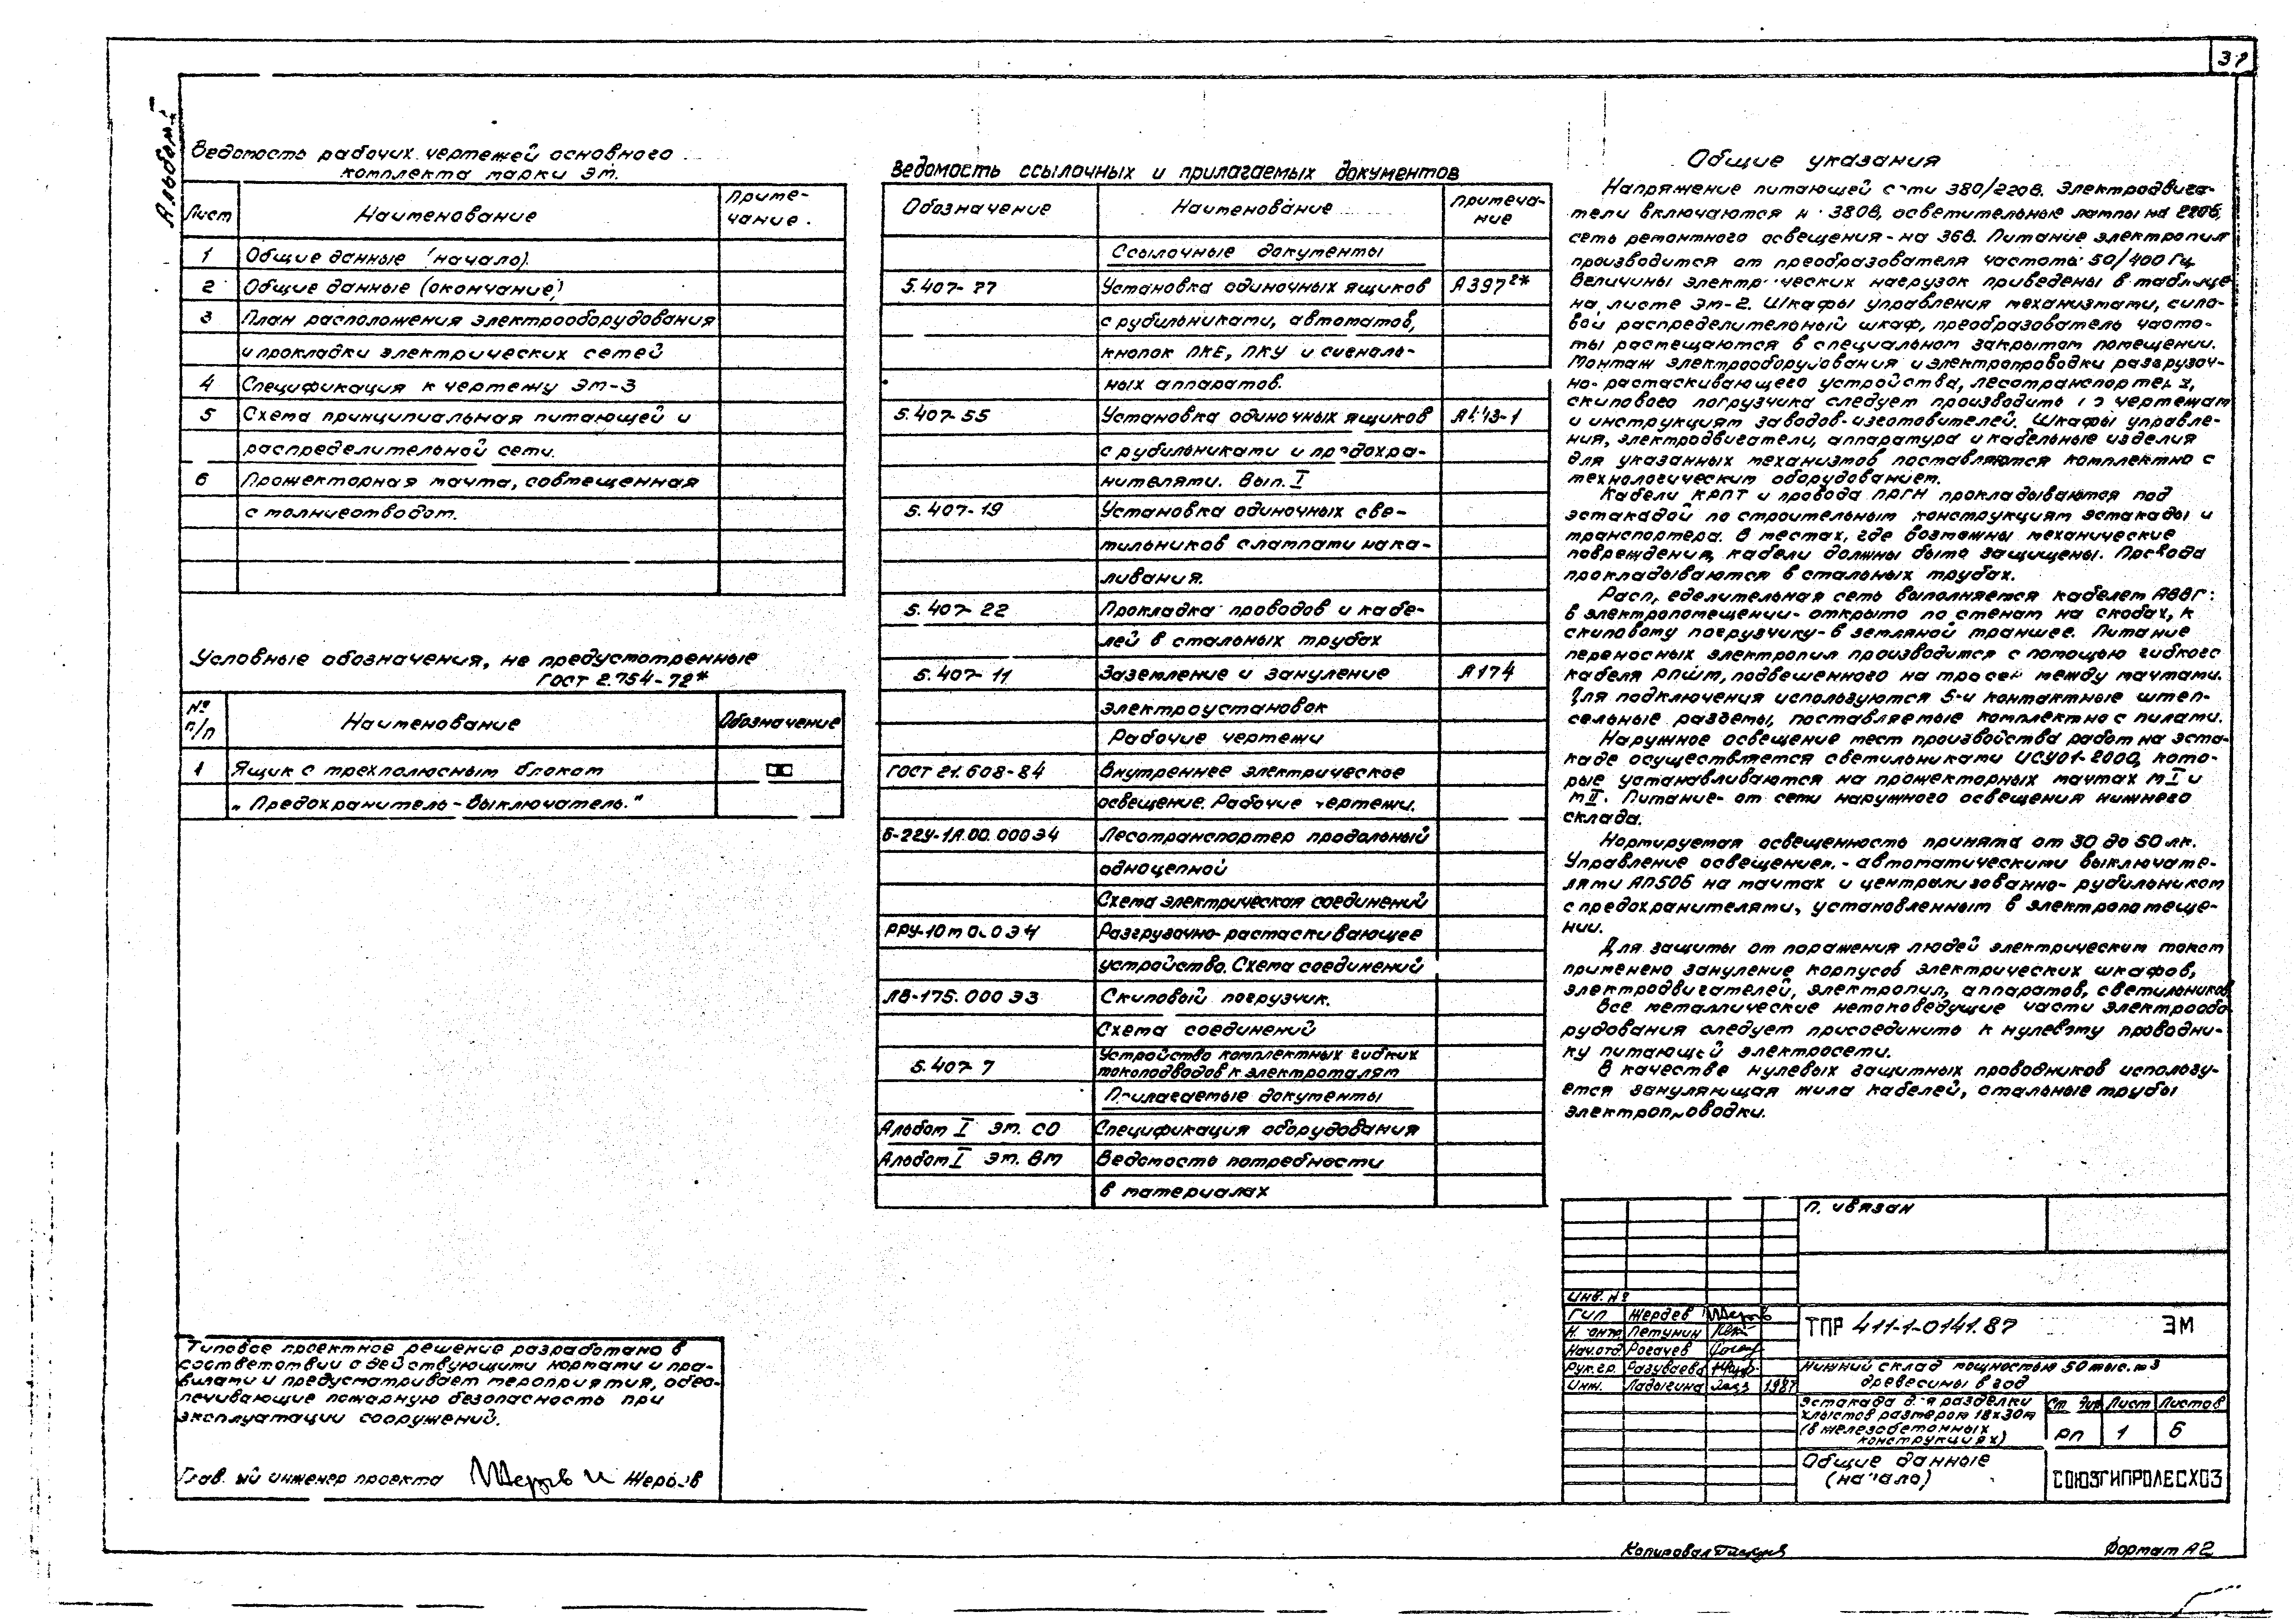 37
Альбом I
Ведомость рабочих чертежей основного
комплекта марки ЭМ.
Лист Наименование Приме-
чание.
1 Общие данные (начало).
2 Общие данные (окончание)
3 План расположения электрооборудования
и прокладки электрических сетей
4 Спецификация к чертежу ЭМ-3
5 Схема принципиальная питающей и
распределительной сети.
6 Прожекторная мачта, совмещенная
с молниеотводом.
Условные обозначения, не предусмотренные
ГОСТ 2.754-72*
№
п/п Наименование Обозначение
1 Ящик с трехполюсным блоком
„Предохранитель-выключатель."
Типовое проектное решение разработано в
соответствии с действующими нормами и пра-
вилами и предусматривает мероприятия, обес-
печивающие пожарную безопасность при
эксплуатации сооружений.
Главный инженер проекта Жердев
Ведомость ссылочных и прилагаемых документов
Обозначение Наименование Примеча-
ние
Ссылочные документы
5.407-77 Установка одиночных ящиков А397²*
с рубильниками, автоматов,
кнопок ПКЕ, ПКУ и сигналь-
ных аппаратов.
5.407-55 Установка одиночных ящиков А443-1
с рубильниками и предохра-
нителями. Вып. I
5.407-19 Установка одиночных све-
тильников с лампами нака-
ливания.
5.407-22 Прокладка проводов и кабе-
лей в стальных трубах
5.407-11 Заземление и зануление А174
электроустановок
Рабочие чертежи
ГОСТ 21.608-84 Внутреннее электрическое
освещение. Рабочие чертежи.
Б-22У-1А.00.000Э4 Лесотранспортер продольный
одноцепной
Схема электрическая соединений
РРУ-10м 0.0Э4 Разгрузочно-растаскивающее
устройство. Схема соединений
ЛВ-175.000 ЭЗ Скиповый погрузчик.
Схема соединений
5.407-7 Устройство комплектных гибких
токоподводов к электроталям
Прилагаемые документы
Альбом I ЭМ. СО Спецификация оборудования
Альбом I ЭМ. ВМ Ведомость потребности
в материалах
Общие указания
Напряжение питающей сети 380/220В. Электродвига-
тели включаются на 380В, осветительные лампы на 220В,
сеть ремонтного освещения - на 36В. Питание электропил
производится от преобразователя частоты 50/400 Гц.
Величины электрических нагрузок приведены в таблице
на листе ЭМ-2. Шкафы управления механизмами, сило-
вой распределительный шкаф, преобразователь часто-
ты размещаются в специальном закрытом помещении.
Монтаж электрооборудования и электропроводки разгрузоч-
но-растаскивающего устройства, лесотранспортера,
скипового погрузчика следует производить по чертежам
и инструкциям заводов-изготовителей. Шкафы управле-
ния, электродвигатели, аппаратура и кабельные изделия
для указанных механизмов поставляются комплектно с
технологическим оборудованием.
Кабели КРПТ и провода ПРГН прокладываются под
эстакадой по строительным конструкциям эстакады и
транспортера. В местах, где возможны механические
повреждения, кабели должны быть защищены. Провода
прокладываются в стальных трубах.
Распределительная сеть выполняется кабелем АВВГ:
в электропомещении - открыто по стенам на скобах, к
скиповому погрузчику - в земляной траншее. Питание
переносных электропил производится с помощью гибкого
кабеля РПШМ, подвешенного на тросе между мачтами.
Для подключения используются 5-и контактные штеп-
сельные разъемы, поставляемые комплектно с пилами.
Наружное освещение мест производства работ на эста-
каде осуществляется светильниками ИСУ01-2000, кото-
рые устанавливаются на прожекторных мачтах М I и
М II. Питание - от сети наружного освещения нижнего
склада.
Нормируемая освещенность принята от 30 до 50 лк.
Управление освещением - автоматическими выключате-
лями АП50Б на мачтах и централизованно - рубильником
с предохранителями, установленным в электропомеще-
нии.
Для защиты от поражения людей электрическим током
применено зануление корпусов электрических шкафов,
электродвигателей, электропил, аппаратов, светильников.
Все металлические нетоковедущие части электрообо
рудования следует присоединить к нулевому проводни-
ку питающей электросети.
В качестве нулевых защитных проводников использу-
ется зануляющая жила кабелей, стальные трубы
электропроводки.
Привязан
Инв. №
ГИП Жердев
Н. контр Петунин
Нач.отд. Рогачев
Рук.гр. Разуваева
Инж. Ладыгина 1987
ТПР 411-1-0141.87 ЭМ
Нижний склад мощностью 50 тыс. м3
древесины в год
Эстакада для разделки
хлыстов размером 18х30м
(в железобетонных
конструкциях)
Лист Листов
РП 1 6
Общие данные
(начало)
СОЮЗГИПРОЛЕСХОЗ
Копировал
Формат А2